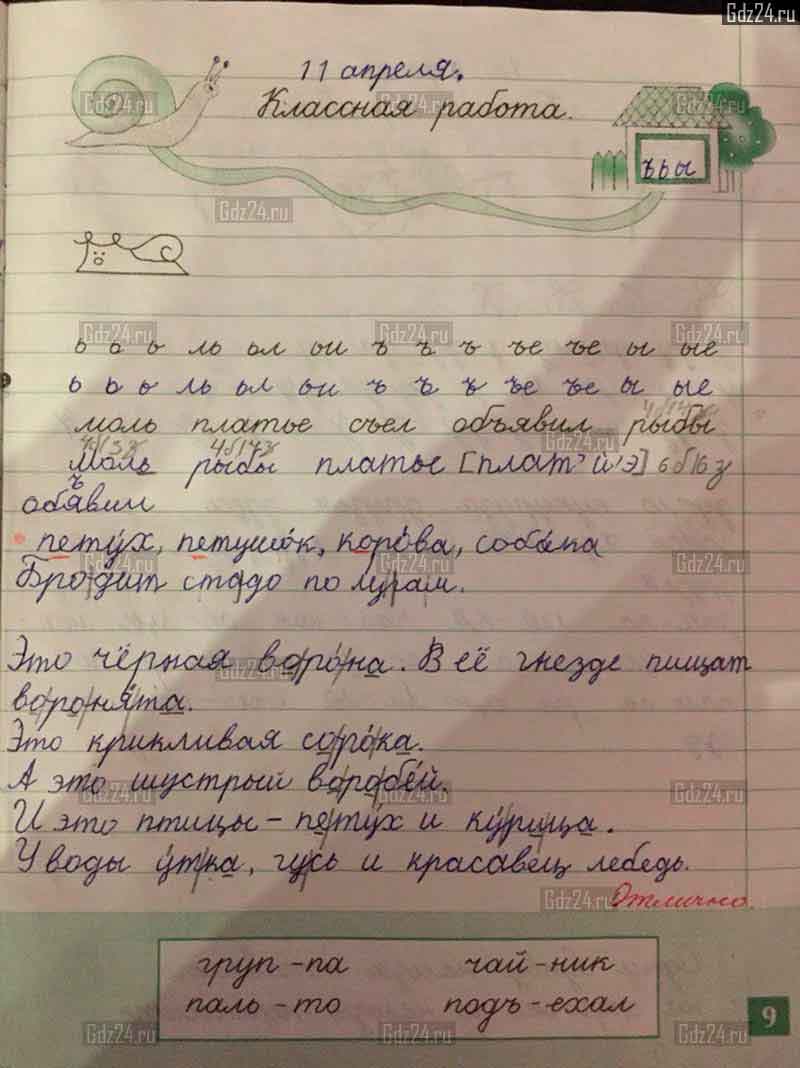 Gdz24.ru
11 апреля.
Классная работа.
ъьы
ь ь ь ль ьл ьи ъ ъ ъ ъе ъе ы ые
ь ь ь ль ьл ьи ъ ъ ъ ъе ъе ы ые
моль платье съел объявил рыбы
4б13з 4б14з 4б14з
моль рыбы платье [плат'й'э] 6б16з
ъ
обявил
петýх, петушóк, корóва, собáка
Бродит стадо по лугам.
Это чёрная ворóна. В её гнезде пищат
воронята.
Это крикливая сорóка.
А это шустрый воробéй.
И это птицы - петýх и кýрица.
У воды ýтка, гусь и красавец лебедь.
Отлично.
груп - па чай - ник
паль - то подъ - ехал
9